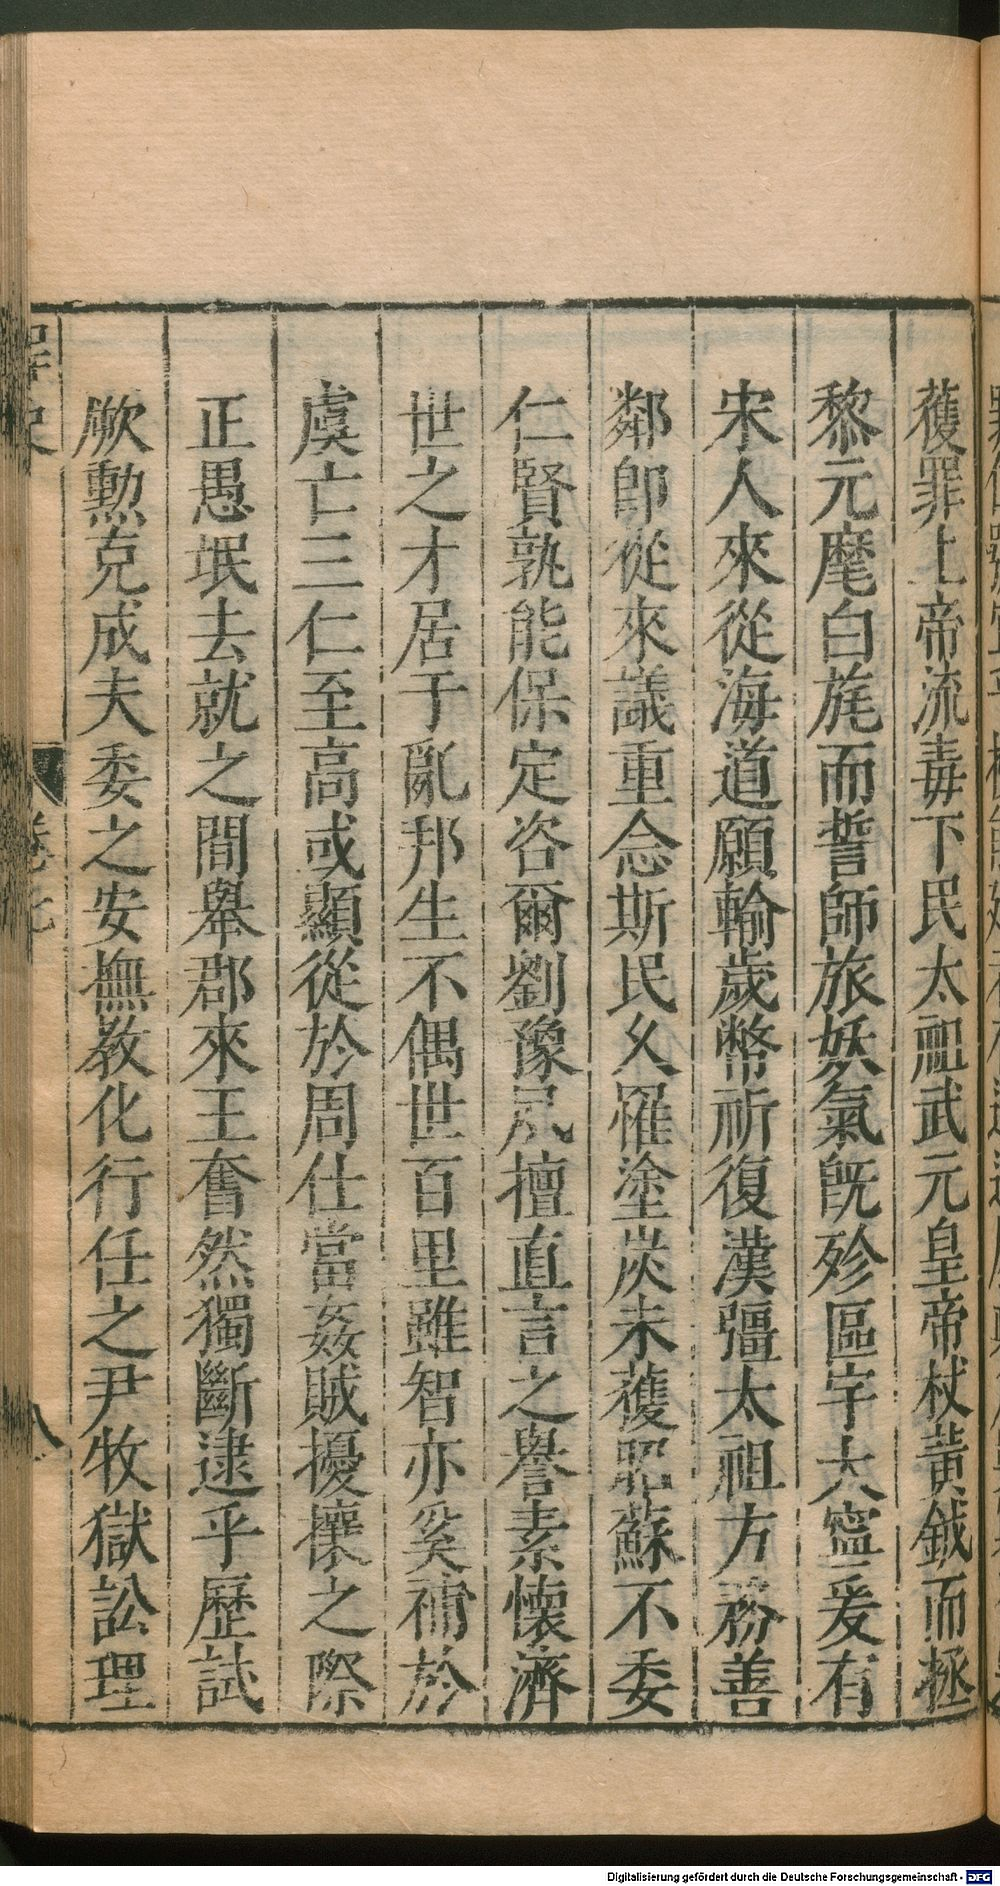 獲罪上帝流毒下民太祖武元皇帝杖黃鉞而拯
黎元麾白旄而誓師旅妖氣旣殄區宇大寧爰有
宋人來從海道願輸歲幣祈復漢疆太祖方務善
鄰卽從來議重念斯民乆罹塗炭未獲昭蘇不委
仁賢孰能保定咨爾劉豫夙擅直言之譽素懷濟
世之才居于亂邦生不偶世百里雖智亦奚補於
虞亡三仁至高或顯從於周仕當姦賊擾攘之際
正愚氓去就之間舉郡來王奮然獨斷逮乎歷試
厥勳克成夫委之安撫敎化行任之尹牧獄訟理
八
Digitalisierung gefördert durch die Deutsche Forschungsgemeinschaft - DFG